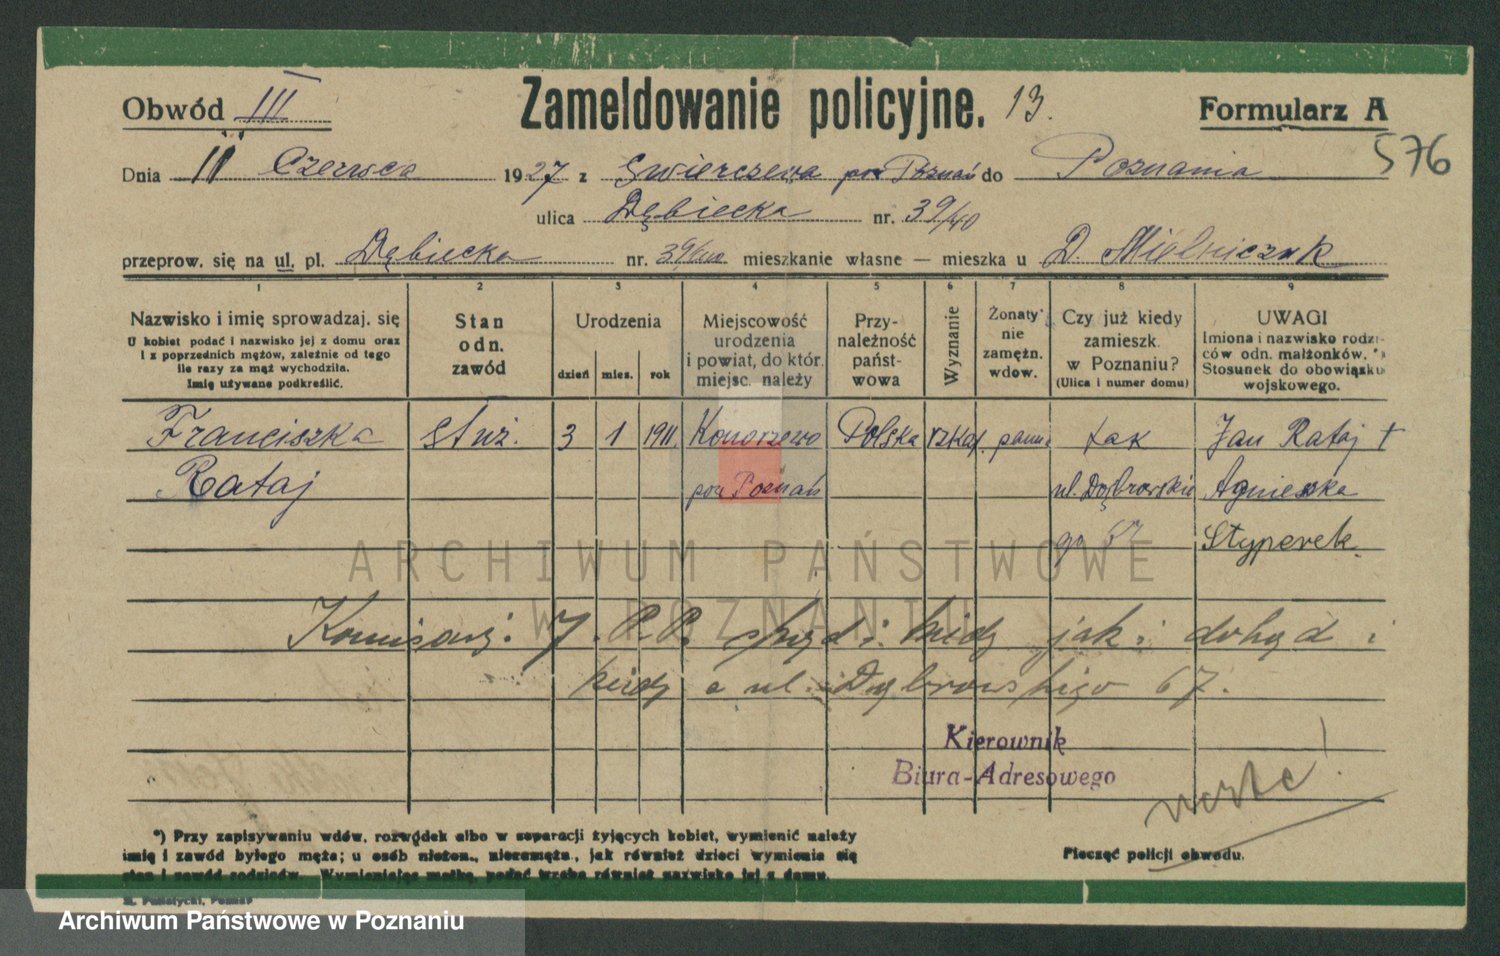 Obwód III
Zameldowanie policyjne. 13.
Formularz A
576
Dnia 11 Czerwca 1927 z Świerczewa pow Poznań do Poznania
ulica Dębiecka nr. 39/40
przeprow. się na ul. pl. Dębiecka nr. mieszkanie własne — mieszka u D. Mielniczuk
1 2 3 4 5 6 7 8 9
Nazwisko i imię sprowadzaj. się
U kobiet podać i nazwisko jej z domu oraz
i z poprzednich mężów, zależnie od tego
ile razy za mąż wychodziła.
Imię używane podkreślić.
Stan
odn.
zawód
Urodzenia
dzień mies. rok
Miejscowość
urodzenia
i powiat, do któr.
miejsc. należy
Przy-
należność
państ-
wowa
Wyznanie
Żonaty
nie
zamężn.
wdow.
Czy już kiedy
zamieszk.
w Poznaniu?
(Ulica i numer domu)
UWAGI
Imiona i nazwisko rodzi-
ców odn. małżonków. *)
Stosunek do obowiązku
wojskowego.
Franciszka służ. 3 1 1911. Konarzewo Polska rzkat. pann. tak Jan Rataj †
Rataj pow Poznań ul. Dąbrowskie Agnieszka
go 67 Styperek.
ARCHIWUM PAŃSTWOWE
W POZNANIU
Komisarj. 7. P.P. skąd i kiedy jak i dokąd i
kiedy z ul. Dąbrowskiego 67.
Kierownik
Biura-Adresowego
*) Przy zapisywaniu wdów, rozwódek albo w separacji żyjących kobiet, wymienić należy
imię i zawód byłego męża; u osób nieżon., niezamęża., jak również dzieci wymienia się
stan i zawód rodziców. Wymieniając matkę, podać trzeba również nazwisko jej z domu.
Pieczęć policji obwodu.
Archiwum Państwowe w Poznaniu